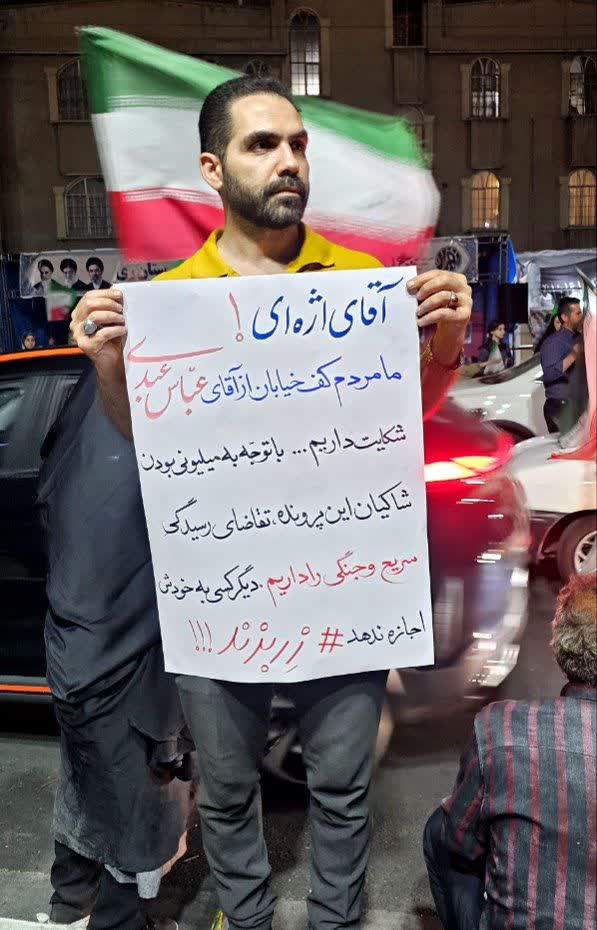 آقای اژه‌ای !
ما مردم کف خیابان از آقای عبّاس عبدی
شکایت داریم... با توجّه به میلیونی بودن
شاکیان این پرونده، تقاضای رسیدگی
سریع و جنگی را داریم. دیگر کسی به خودش
اجازه ندهد # زر بزند !!!